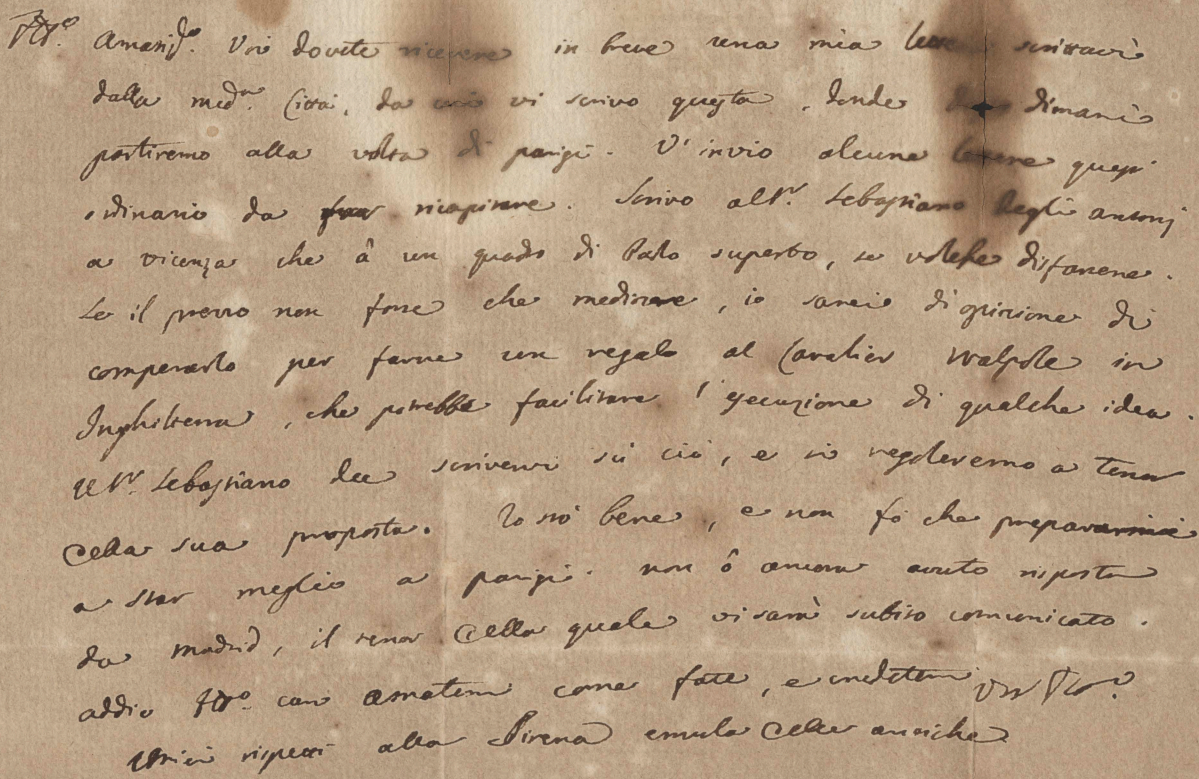 Amatis.º Voi dovete ricevere in breve una mia scrittavi
dalla med.ª Città, da cui vi scrivo questa, donde dimani
partiremo alla volta di parigi. V'invio alcune lettere quest'
ordinario da far ricapitare. Scrivo al Sr. Sebastiano degli antonj
a vicenza che â un quadro di Palo superbo, se volesse disfarsene.
Se il prezzo non fosse che mediocre, io sarei di opinione di
comperarlo per farne un regalo al Cavalier Walpole in
Inghilterra, che potrebbe facilitare l'esecuzione di qualche idea.
Il Sr. Sebastiano dee scrivervi sù ciò, e vi regoleremo a tenor
della sua proposta. Io stò bene, e non fò che prepararmi
a star meglio a parigi. non ô ancora avuto risposta
da madrid, il tenor della quale vi sarà subito comunicato.
addio caro amatemi come fate, e credetemi
Miei rispetti alla Sirena emula delle antiche